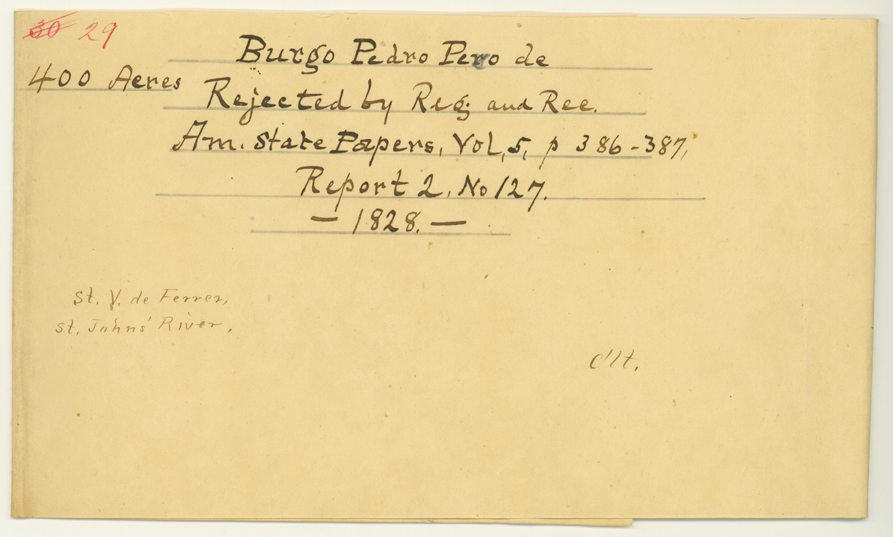 30 29
Burgo Pedro Pero de
400 Acres
Rejected by Reg. and Rec.
Am. State Papers, Vol, 5, p 386-387,
Report 2, No 127.
— 1828. —
St. V. de Ferrer,
St. Johns' River.